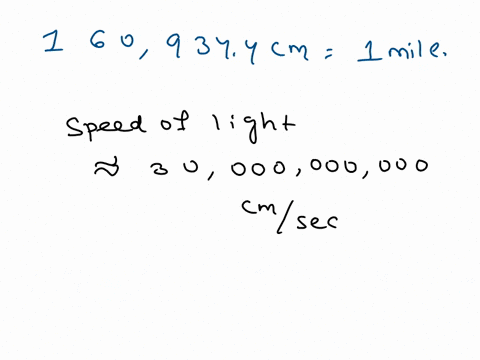 1 60,934.4 cm = 1 mile.
Speed of light
≈ 30,000,000,000
cm/sec